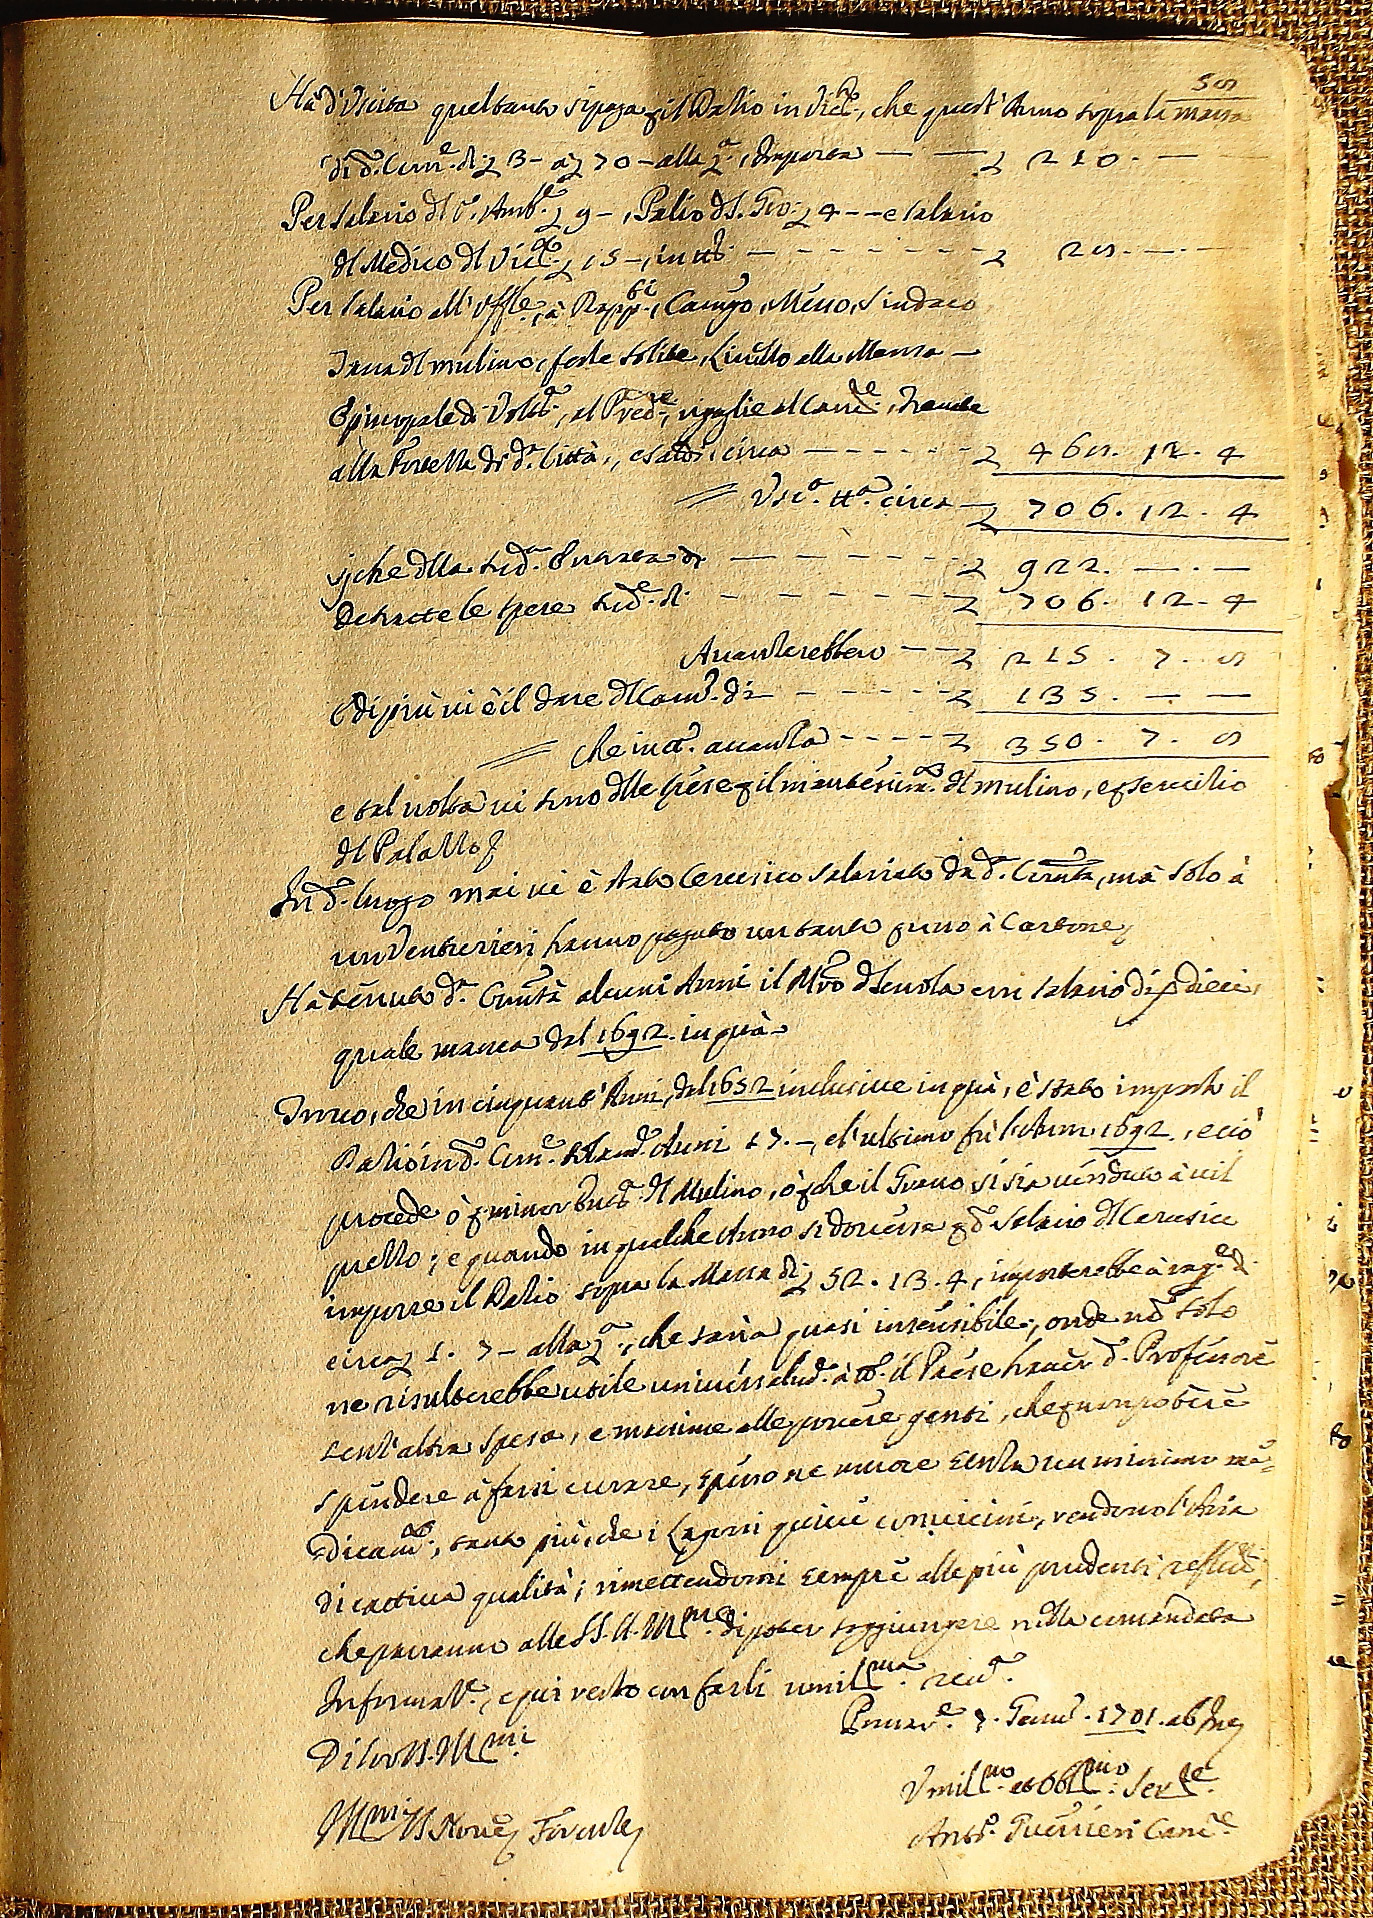 58
Hà d'Uscita quel tanto si paga p il Dazio in Vic.to, che quest'Anno sopra la massa
di d.o Com.e di £ 3 – a £ 70 – alla £.a, importa — — £ 210. — —
Per salario del P. Amb.re £ 9 –, Palio di S. Gio: £ 4 – – e salario
del Medico del Vic.to £ 15 –, in tt.o — — — £ 28. — —
Per salario all' Offle, à Rapp.ti, Camgo, Messo, Sindaco
Tassa del mulino, feste solite, Livello alla Mensa —
Episcopale di Volt.a, al Pred.re, regaglie al Canc.re, tratte
alla Fortezza di d.a Città, e saldi, circa — — — £ 468. 12. 4
= Usc.a tt.a circa — £ 706. 12. 4
si che dlla sud.a Entrata di — — — £ 922. — . —
Detratte le spese sud.e di — — — £ 706. 12. 4
Avanzerebbero — — £ 215. 7. 8
E di più vi è il dare del Cam.o di — — — £ 135. — —
= che in tt.o avanza — — — £ 350. 7. 8
e tal volta vi sono dlle spese p il mantenim.to del mulino, e p servitio
del Palazzo
In d.o luogo mai vi è stato Cerusico salariato da d.a Comtà, mà solo à
un Venturieri hanno pagato un tanto p uno à Carbone
Hà tenuto d.a Comtà alcuni Anni il Mro di Scuola con salario di dieci,
quale manca dal 1692. in quà
Trovo, che in cinquant'Anni, dal 1652 inclusive in quà, è stato imposto il
Dazio in d.o Com.e Anni 17. –, e l'ultimo fù l'Anno 1692., e ciò
procede ò p minor Entr.a del Mulino, ò p che il Grano si sia venduto à vil
prezzo; e quando in qualche Anno si dovesse p d.o Salario del Cerusico
imporre il Dazio sopra la Massa di £ 52. 13. 4, importerebbe à rag.e di
circa £ 1. 7 – alla £.a, che saria quasi insensibile; onde nõ solo
ne risulterebbe utile à tt.o il Paese haver d.o Professore
senz'altra spesa, e massime alle povere genti, che p non potere
spendere à farsi curare, spesso ne muore senza un minimo me=
=dicam.to, tanto più, che i Lagoni quivi convicini, rendono l'Aria
di cattiva qualità; rimettendomi sempre alle più prudenti refless.ni,
che parranno alle SS. VV. Ill.me di poter soggiungere nella comandata
Informat.e, e qui resto con farli umil.ma rev.a
Di lor SS. Ill.mi
Pomar.e 7. Genn.o 1701. ab Inc.
Umil.mo et Obl.mo Ser.re
Ill.mi SS. Nove Firenze
Ant.o Guerrieri Canc.re